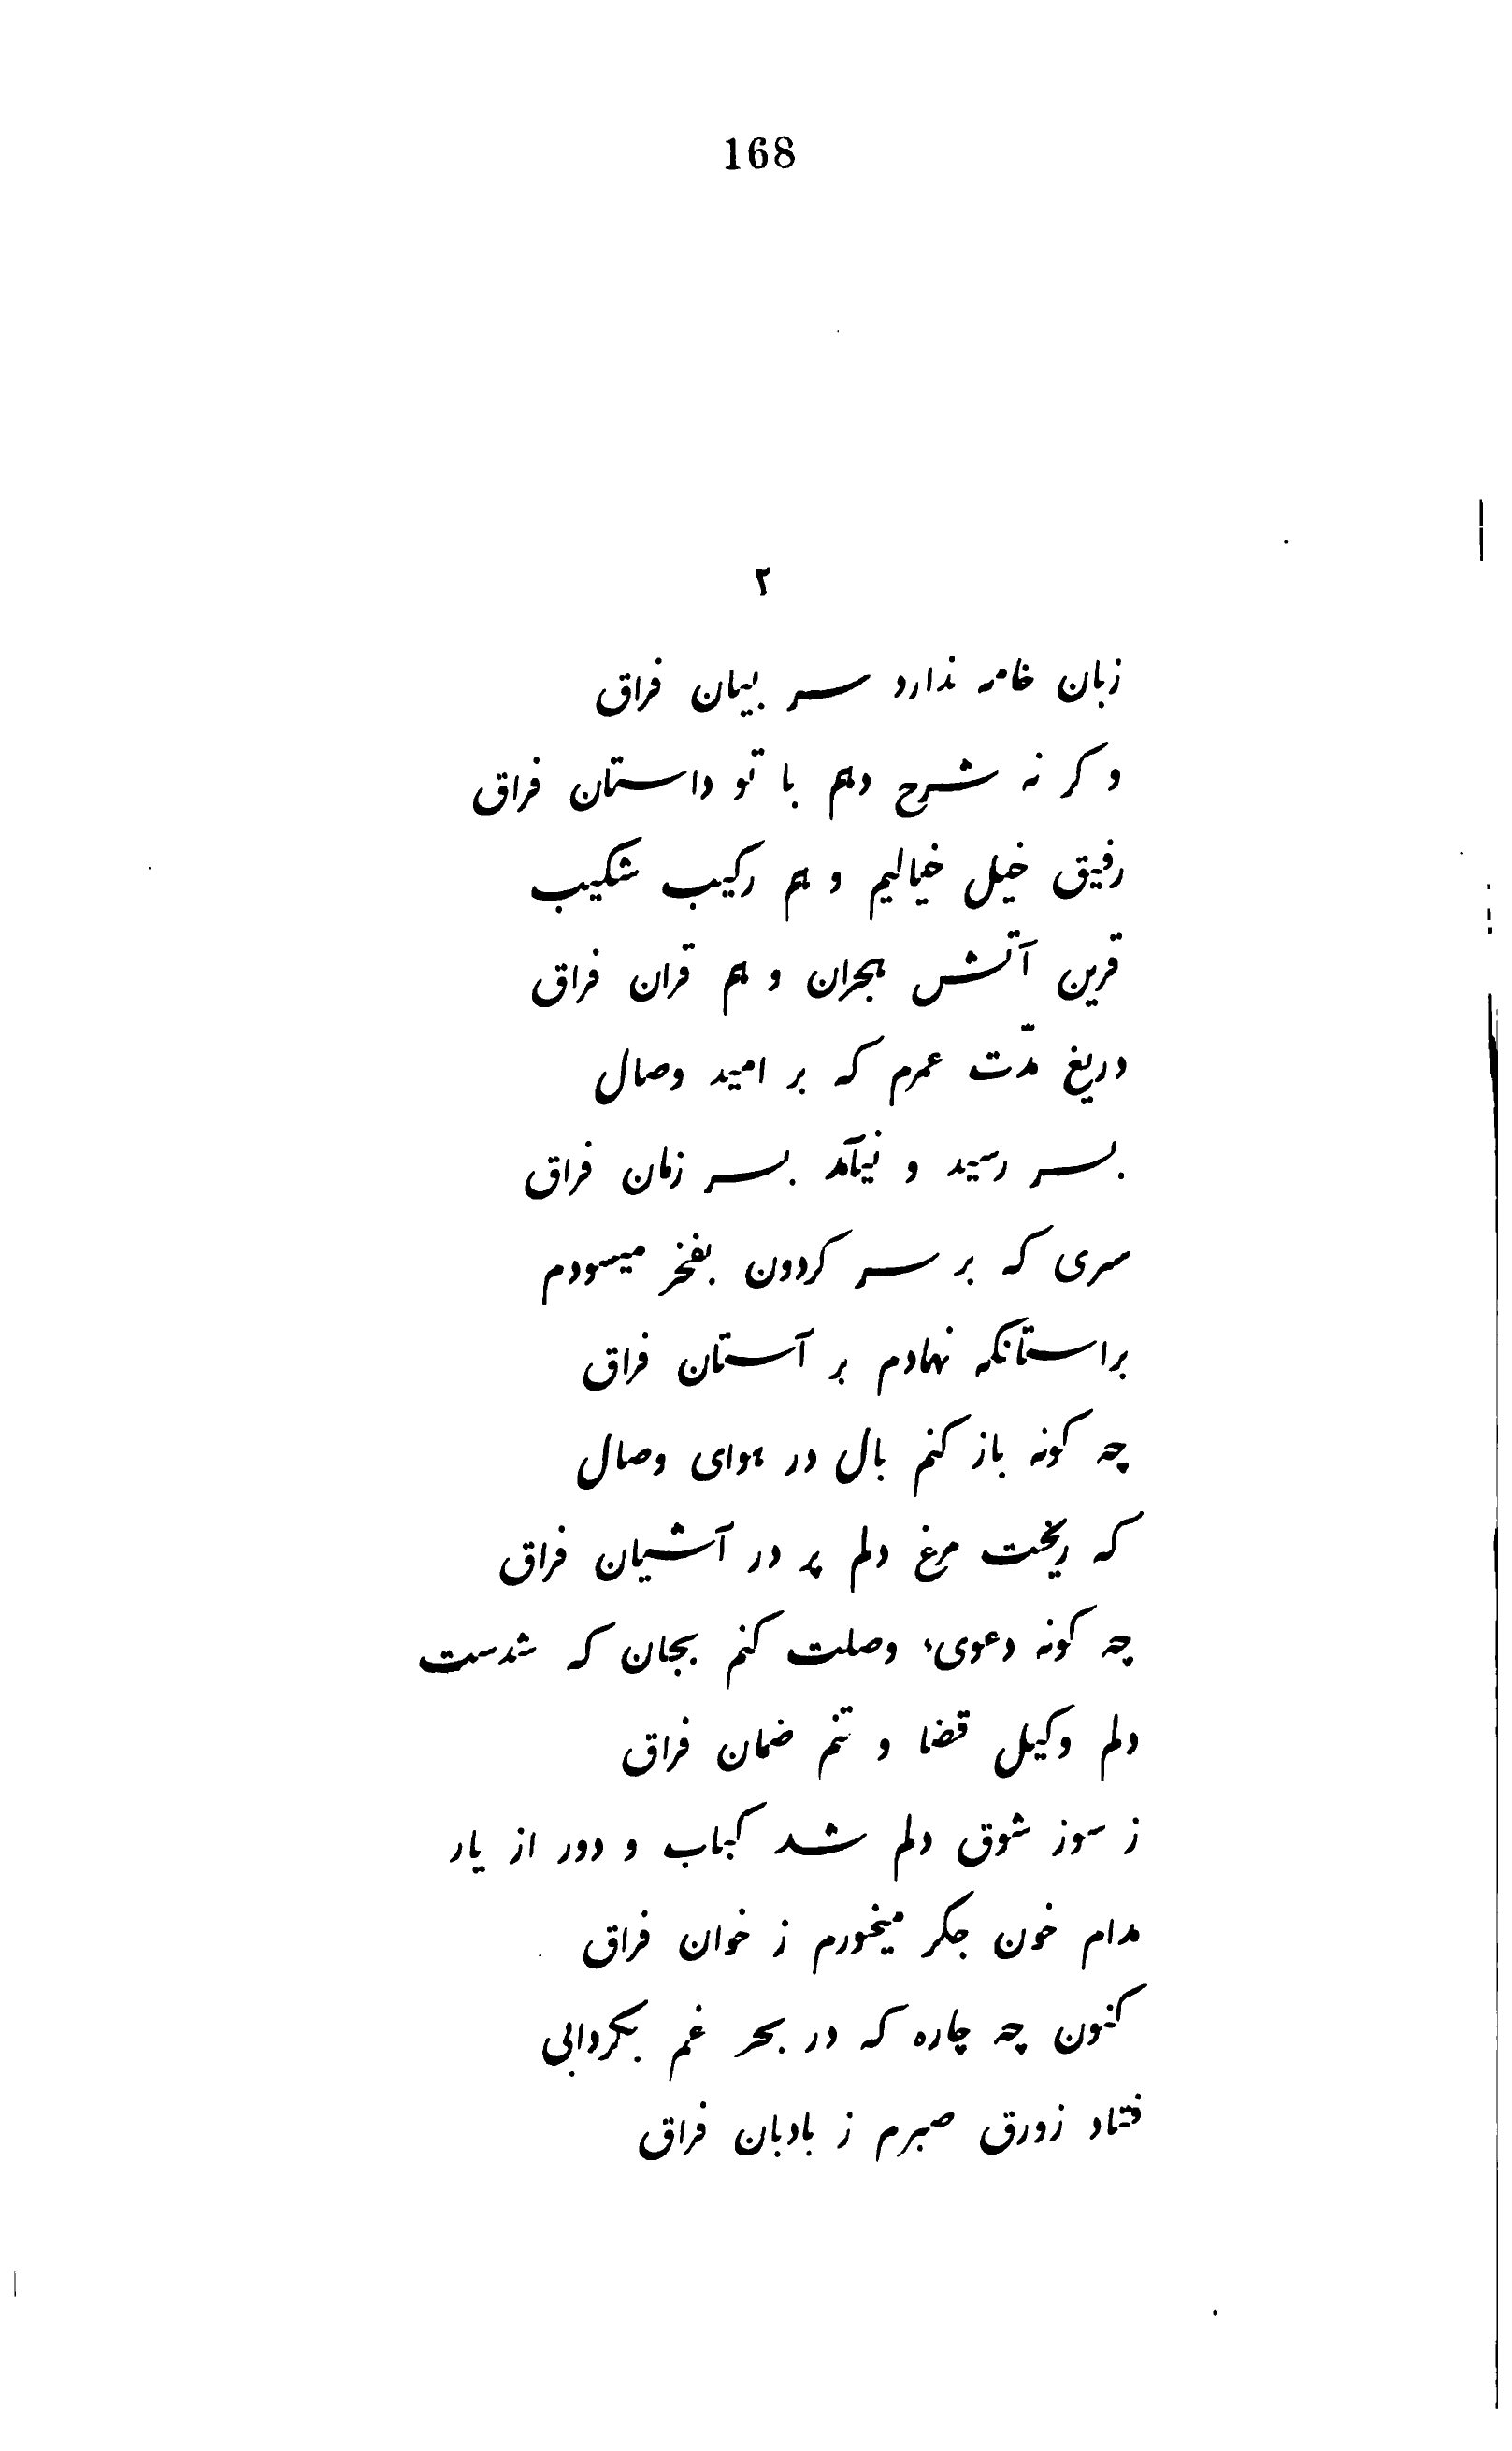 168
۲
زبان خامه ندارد سر بیان فراق
و کر نه شرح دهم با تو داستان فراق
رفیق خیل خیالیم و هم رکیب شکیب
قرین آتش هجران و هم قران فراق
دریغ مدّت عمرم که بر امید وصال
بسر رسید و نیآمد بسر زمان فراق
سری که بر سر کردون بفخر میسودم
براستانکه نهادم بر آستان فراق
چه کونه باز کنم بال در هوای وصال
که ریخت مرغ دلم پر در آشیان فراق
چه کونه دعویء وصلت کنم بجان که شدست
دلم وکیل قضا و تنم ضمان فراق
ز سوز شوق دلم شد کباب و دور از یار
مدام خون جکر میخورم ز خوان فراق
کنون چه چاره که در بحر غم بکردابی
فتاد زورق صبرم ز بادبان فراق